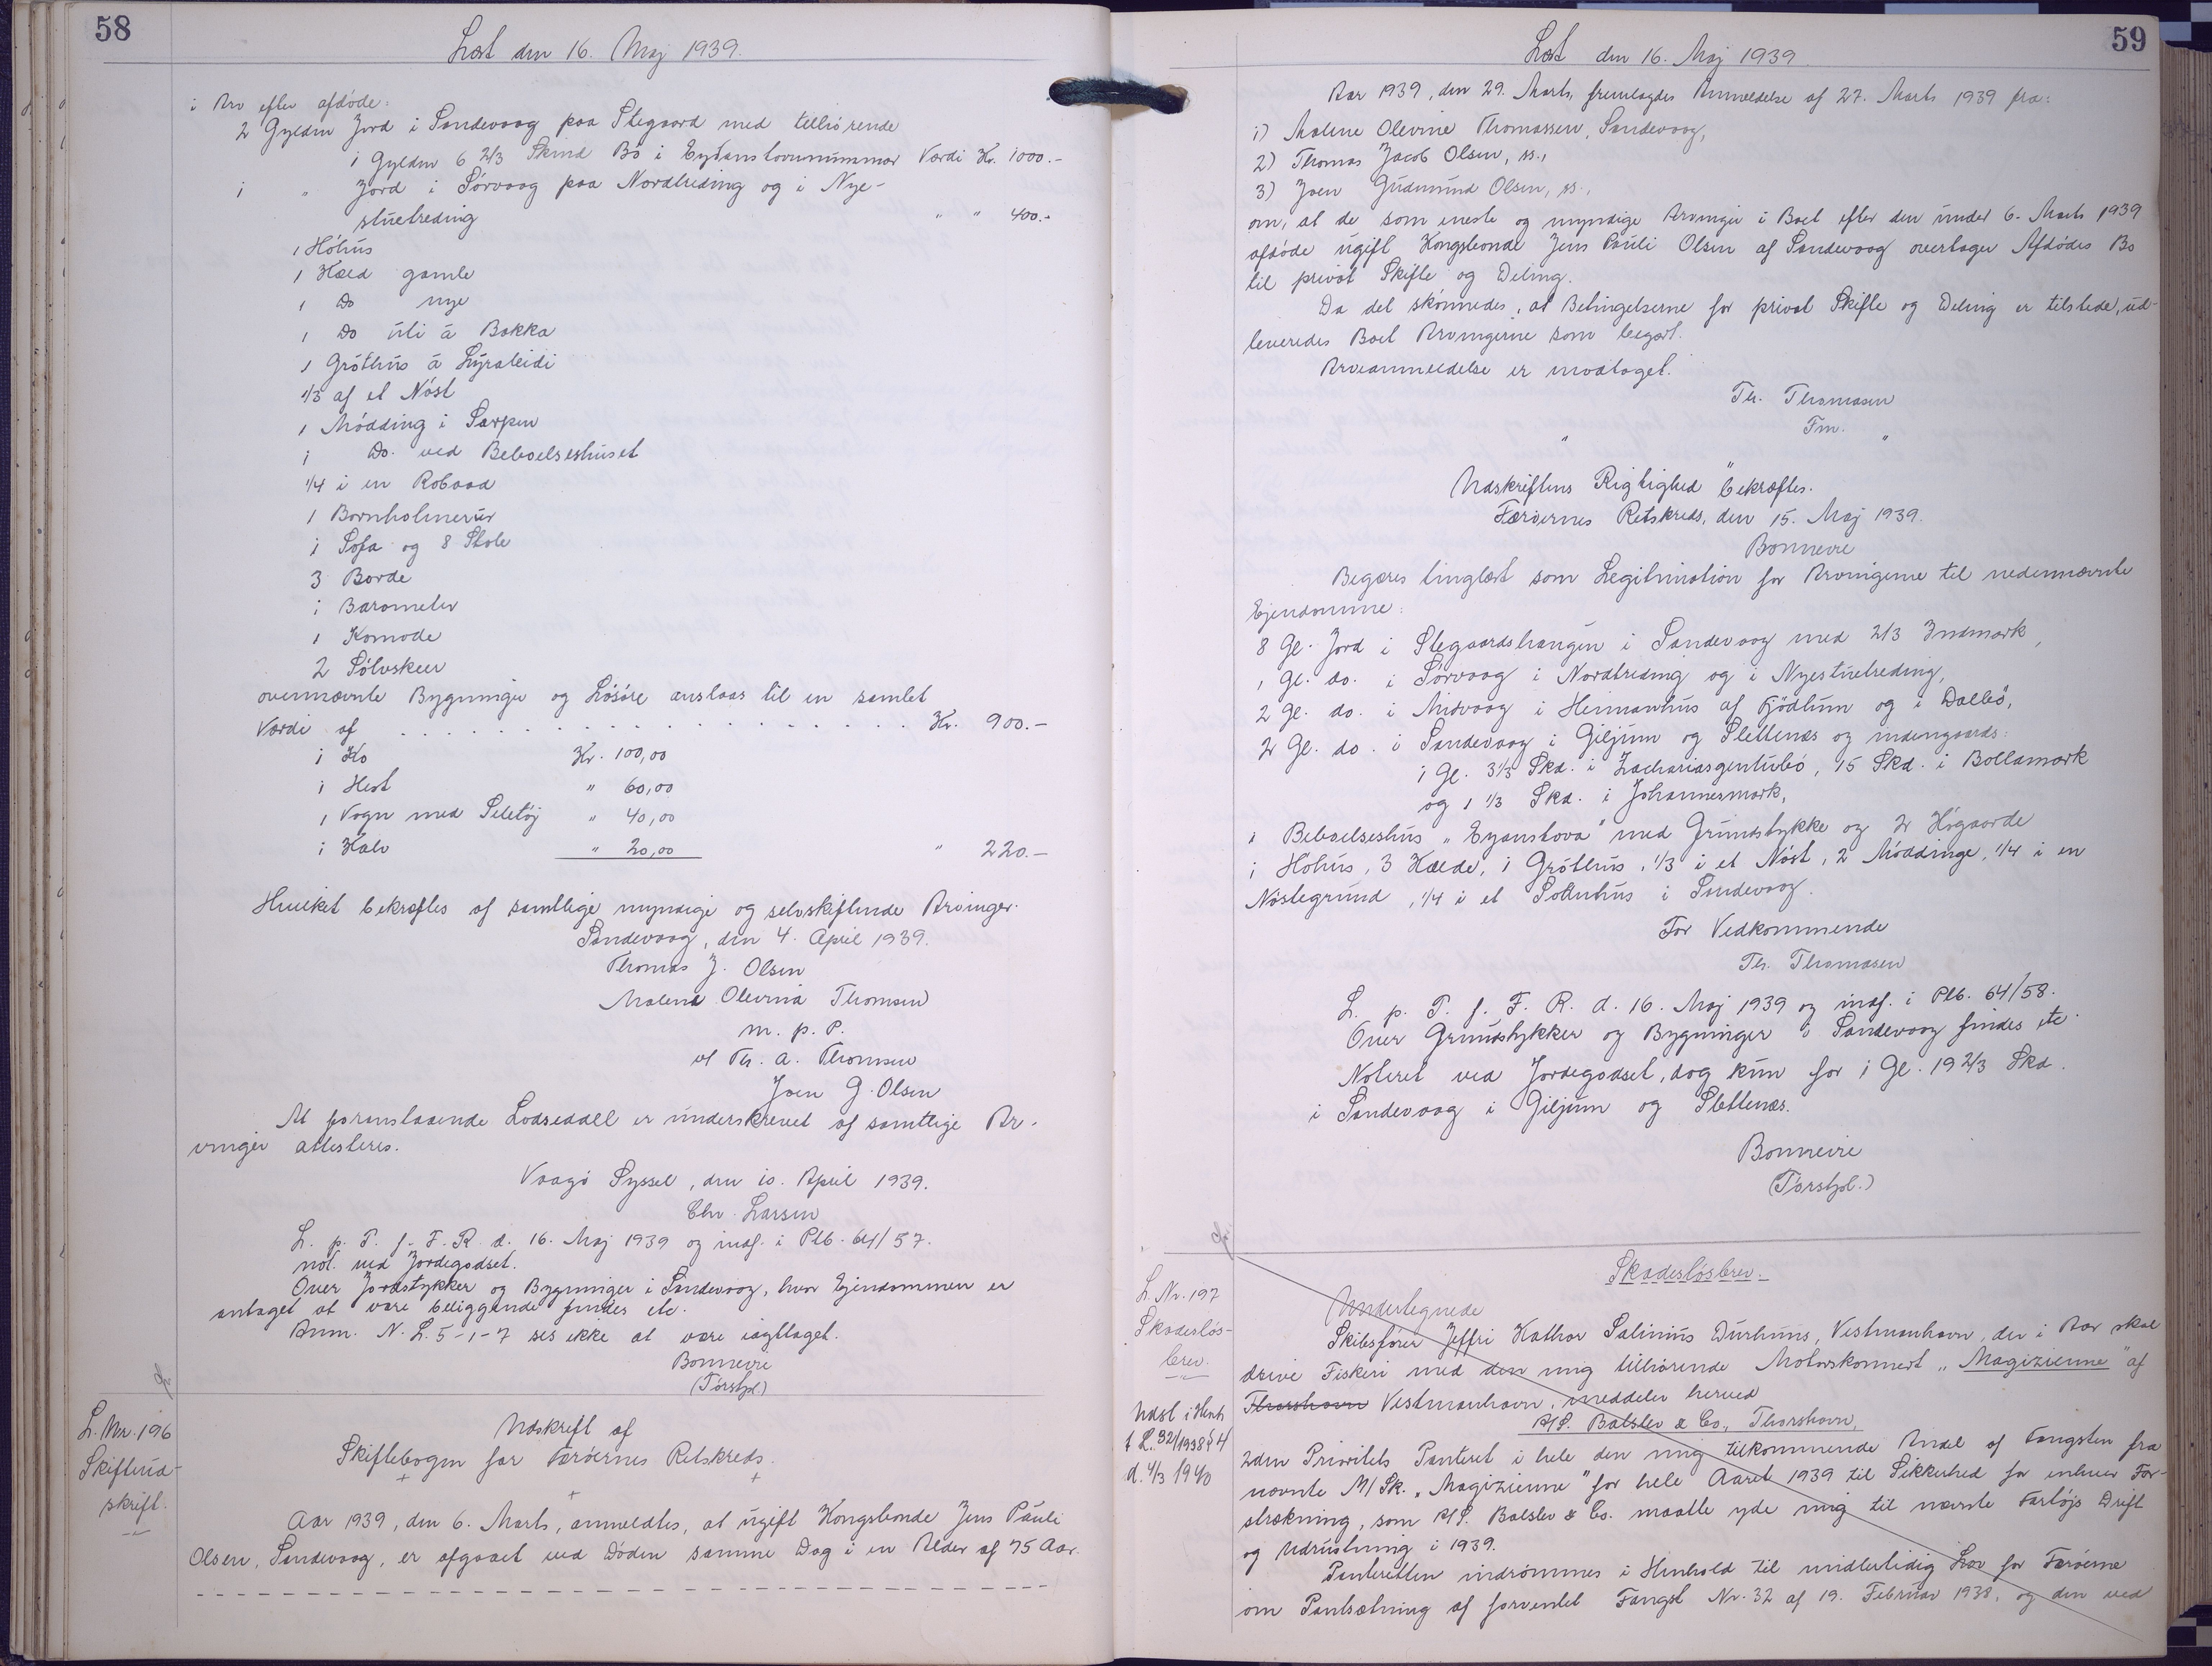 58
Læst den 16. Maj 1939.
i Arv efter afdøde:
2 Gylden Jord i Sandevaag paa Stegaard med tilhørende
1 Gylden 6 2/3 Skind Bø i Eydanstovunummar Værdi Kr. 1000.-
1 " Jord i Sørvaag paa Nordtreding og i Nye-
stuetreding " " 400.-
1 Høhus
1 Hæld gamle
1 Do nye
1 Do uti á Bakka
1 Gróthús á Lýraleidi
1/3 af et Nøst
1 Mødding i Sarpen
1 Do. ved Beboelseshuset
1/4 i en Robaad
1 Bornholmerur
1 Sofa og 8 Stole
3 Borde
1 Barometer
1 Komode
2 Sølvskeer
ovennævnte Bygninger og Løsøre anslaas til en samlet
Værdi af . . . . . . . . . . . . . . . . Kr. 900.-
1 Ko Kr. 100,00
1 Hest " 60,00
1 Vogn med Seletøj " 40,00
1 Kalv " 20,00 " 220.-
Hvilket bekræftes af samtlige myndige og selvskiftende Arvinger.
Sandevaag, den 4. April 1939.
Thomas J. Olsen
Malena Olevina Thomsen
m. p. P.
v/ Th. A. Thomsen
Joen G. Olsen
At foranstaaende Lodseddel er underskrevet af samtlige Ar-
vinger attesteres.
Vaagø Syssel, den 10. April 1939.
Chr. Larsen
L. p. T. f. F. R. d. 16. Maj 1939 og indf. i Plb. 64/57.
not. ved Jordegodset.
Over Jordstykker og Bygninger i Sandevaag, hvor Ejendommen er
antaget at være beliggende findes etc.
Anm. N. L. 5-1-7 ses ikke at være iagttaget.
Bonnevie
(Tórshpl.)
L. Nr. 196
Skifteud-
skrift.
Udskrift af
Skiftebogen for Færøernes Retskreds.
Aar 1939, den 6. Marts, anmeldtes, at ugift Kongsbonde Jens Pauli
Olsen, Sandevaag, er afgaaet ved Døden samme Dag i en Alder af 75 Aar.
59
Læst den 16. Maj 1939
Aar 1939, den 29. Marts, fremlagdes Anmeldelse af 27. Marts 1939 fra:
1) Malene Olevine Thomassen, Sandevaag,
2) Thomas Jacob Olsen, ss.,
3) Joen Gudmund Olsen, ss.,
om, at de som eneste og myndige Arvinger i Boet efter den under 6. Marts 1939
afdøde ugift Kongsbonde Jens Pauli Olsen af Sandevaag overtager Afdødes Bo
til privat Skifte og Deling.
Da det skønnedes, at Betingelserne for privat Skifte og Deling er tilstede, ud-
leveredes Boet Arvingerne som begært.
Arveanmeldelse er modtaget.
Th. Thomasen
Fm.
" "
Udskriftens Rigtighed bekræftes.
Færøernes Retskreds, den 15. Maj 1939.
Bonnevie
Begæres tinglæst som Legitimation for Arvingerne til nedennævnte
Ejendomme:
8 Gl. Jord i Stegaardshaugen i Sandevaag med 2/3 Indmark,
1 Gl. do. i Sørvaag i Nordtreding og i Nyestuetreding,
2 Gl. do. i Midvaag i Heimanhus af Fjødlum og i Dalbø,
2 Gl. do. i Sandevaag i Giljum og Slettenæs og indengaards:
1 Gl. 3 1/3 Skd. i Zachariasgentubø, 15 Skd. i Bollamørk
og 1 1/3 Skd. i Johannesmørk,
1 Beboelseshus "Eyanstova" med Grundstykke og 2 Høgaarde
1 Høhus, 3 Hælde, 1 Gróthús, 1/3 i et Nøst, 2 Møddinge, 1/4 i en
Nøstegrund, 1/4 i et Sodnhus i Sandevaag.
For Vedkommende
Th. Thomasen
L. p. T. f. F. R. d. 16. Maj 1939 og indf. i Plb. 64/58.
Over Grundstykker og Bygninger i Sandevaag findes etc.
Noteret ved Jordegodset, dog kun for 1 Gl. 19 2/3 Skd.
i Sandevaag i Giljum og Slettenæs.
Bonnevie
(Tórshpl.)
L. Nr. 197
Skadesløs-
brev.
Udsl i Henh
t L. 32/1938 § 4
d. 4/3 1940
Skadesløsbrev.
Undertegnede
Skibsfører Jeffri Hathor Salinius Durhuus, Vestmanhavn, der i Aar skal
drive Fiskeri med den mig tilhørende Motorskonnert "Magizienne" af
Thorshavn Vestmanhavn, meddeler herved
A/S. Balslev & Co., Thorshavn,
2den Prioritets Panteret i hele den mig tilkommende Andel af Fangsten fra
nævnte M/Sk. "Magizienne" for hele Aaret 1939 til Sikkerhed for enhver For-
strækning, som A/S. Balslev & Co. maatte yde mig til nævnte Fartøjs Drift
og Udrustning i 1939.
Panteretten indrømmes i Henhold til midlertidig Lov for Færøerne
om Pantsætning af forventet Fangst Nr. 32 af 19. Februar 1938, og den ved